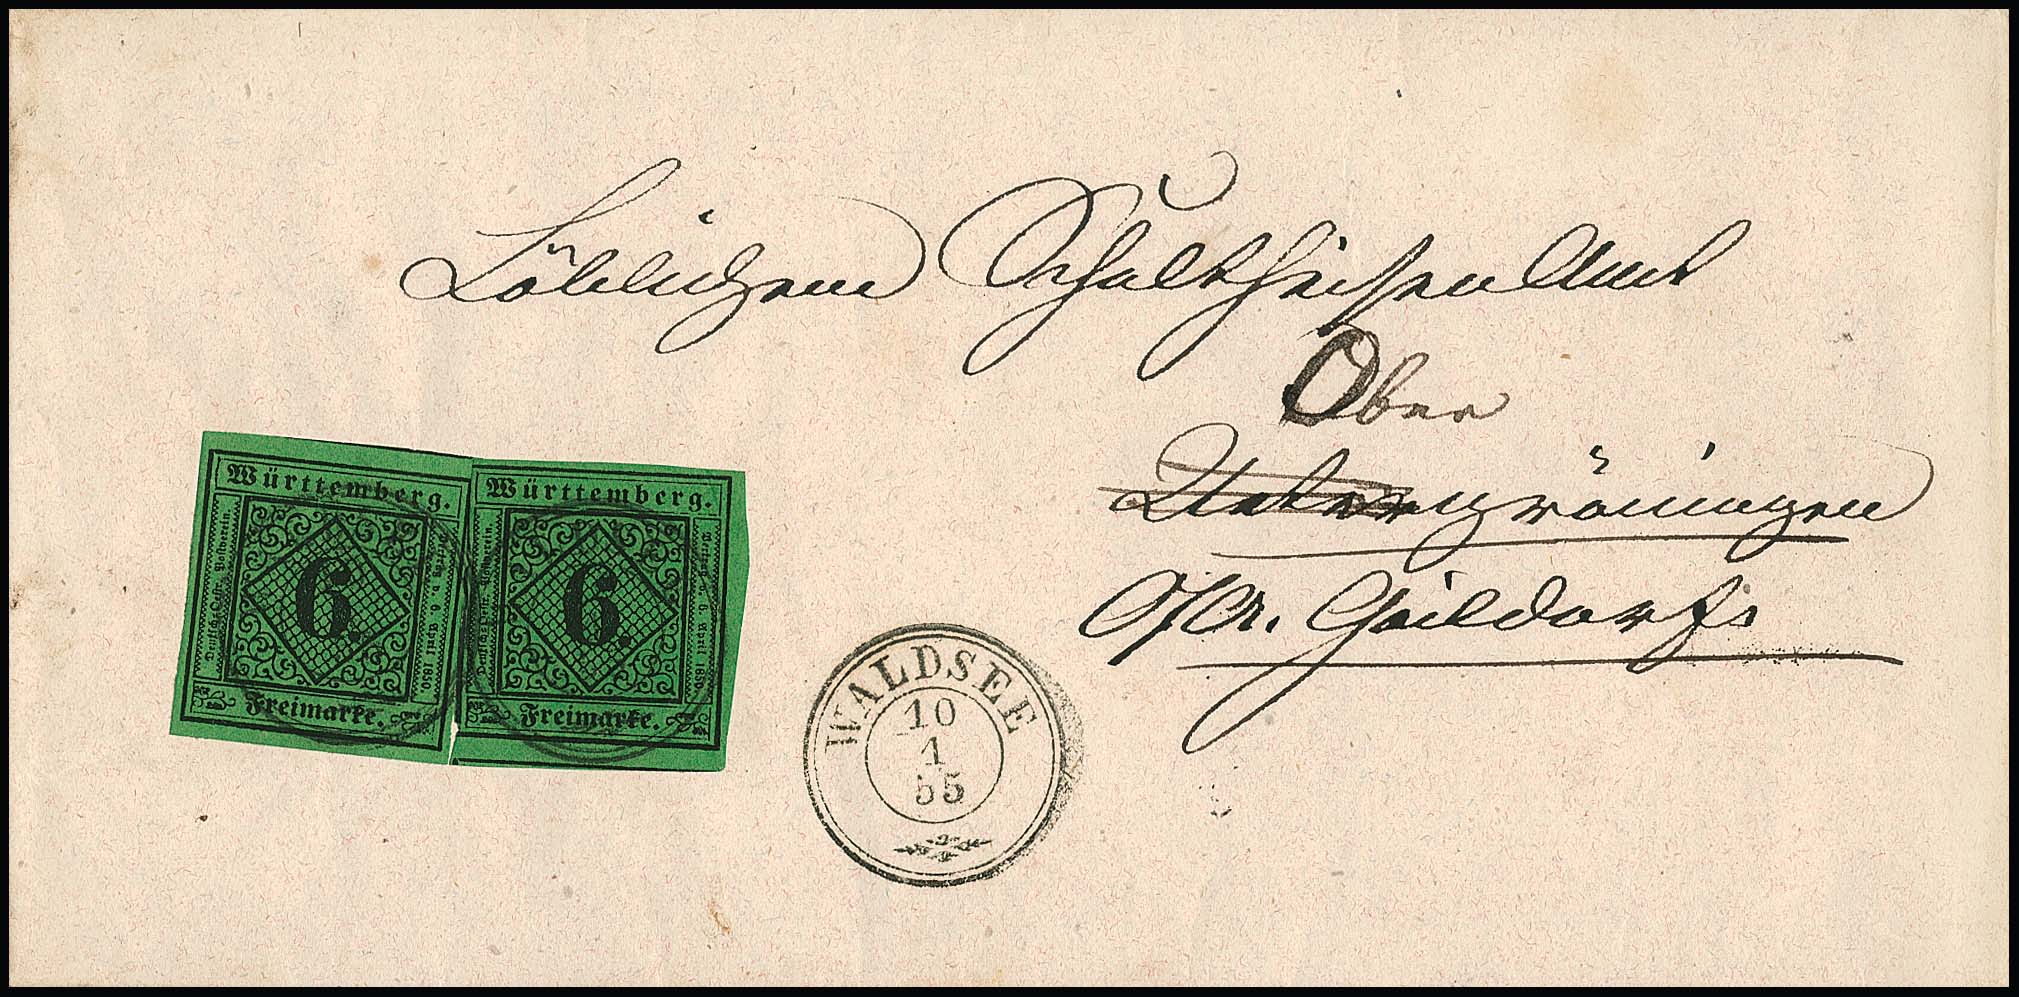 Löblichem Schultheisen Amt
Ober
Untergröningen
O/A. Gaildorf.
Württemberg.
Deutsch Oestr. Postverein.
Vertrag v. 6. April 1850.
6.
Freimarke.
Württemberg.
Deutsch Oestr. Postverein.
Vertrag v. 6. April 1850.
6.
Freimarke.
WALDSEE
10
1
55